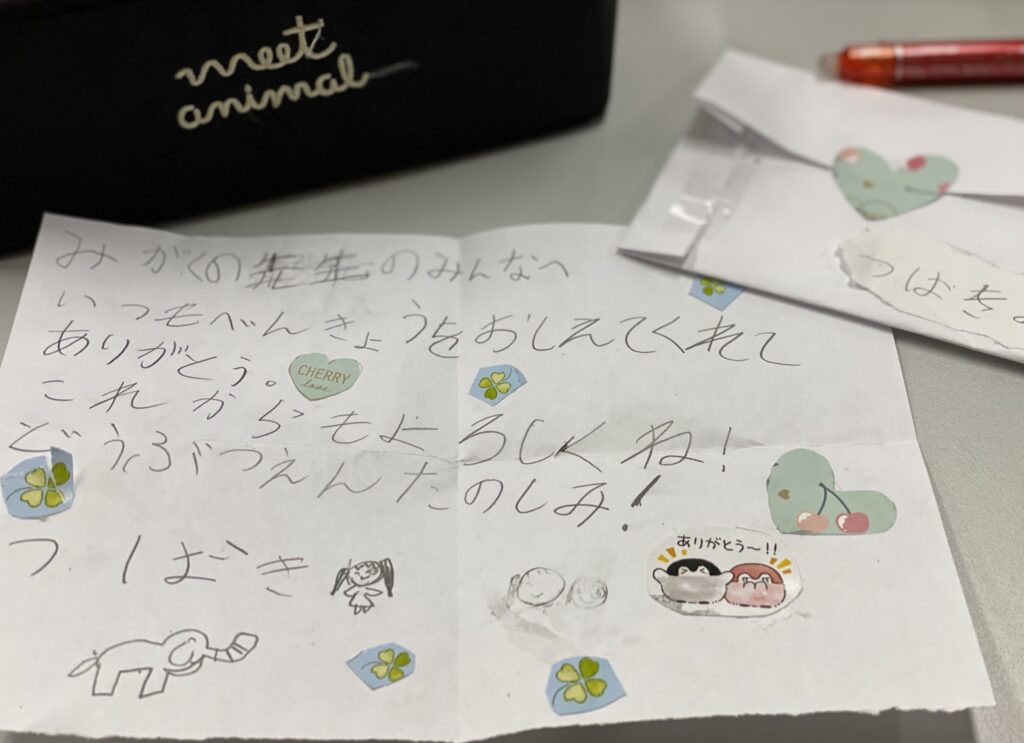 meet
animal
みがくの先生のみんなへ
いつもべんきょうをおしえてくれて
ありがとう。
CHERRY
love
これからもよろしくね!
どうぶつえんたのしみ!
つばき
ありがとう〜!!
つばきよ